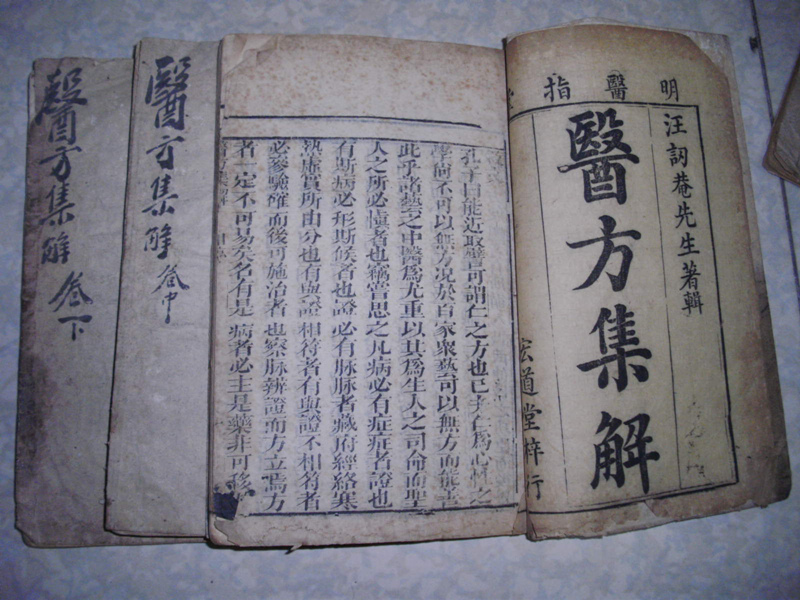 明醫指
汪訒菴先生著輯
醫方集解
宏道堂梓行
孔子曰能近取譬可謂仁之方也已夫仁爲心性之
學尚不可以無方况於百家衆藝可以無方而能善
此乎諸藝之中醫爲尤重以其爲生人之司命而聖
人之所必愼者也竊嘗思之凡病必有症症者證也
有斯病必形斯候者也證必有脉脉者臟府經絡寒
熱虛實所由分也有與證相符者有與證不相符者
必參驗確而後可施治者也察脉辨證而方立焉方
者一定不可易矣名有是病者必主是藥非可移
醫方集解 卷中
醫方集解 卷下